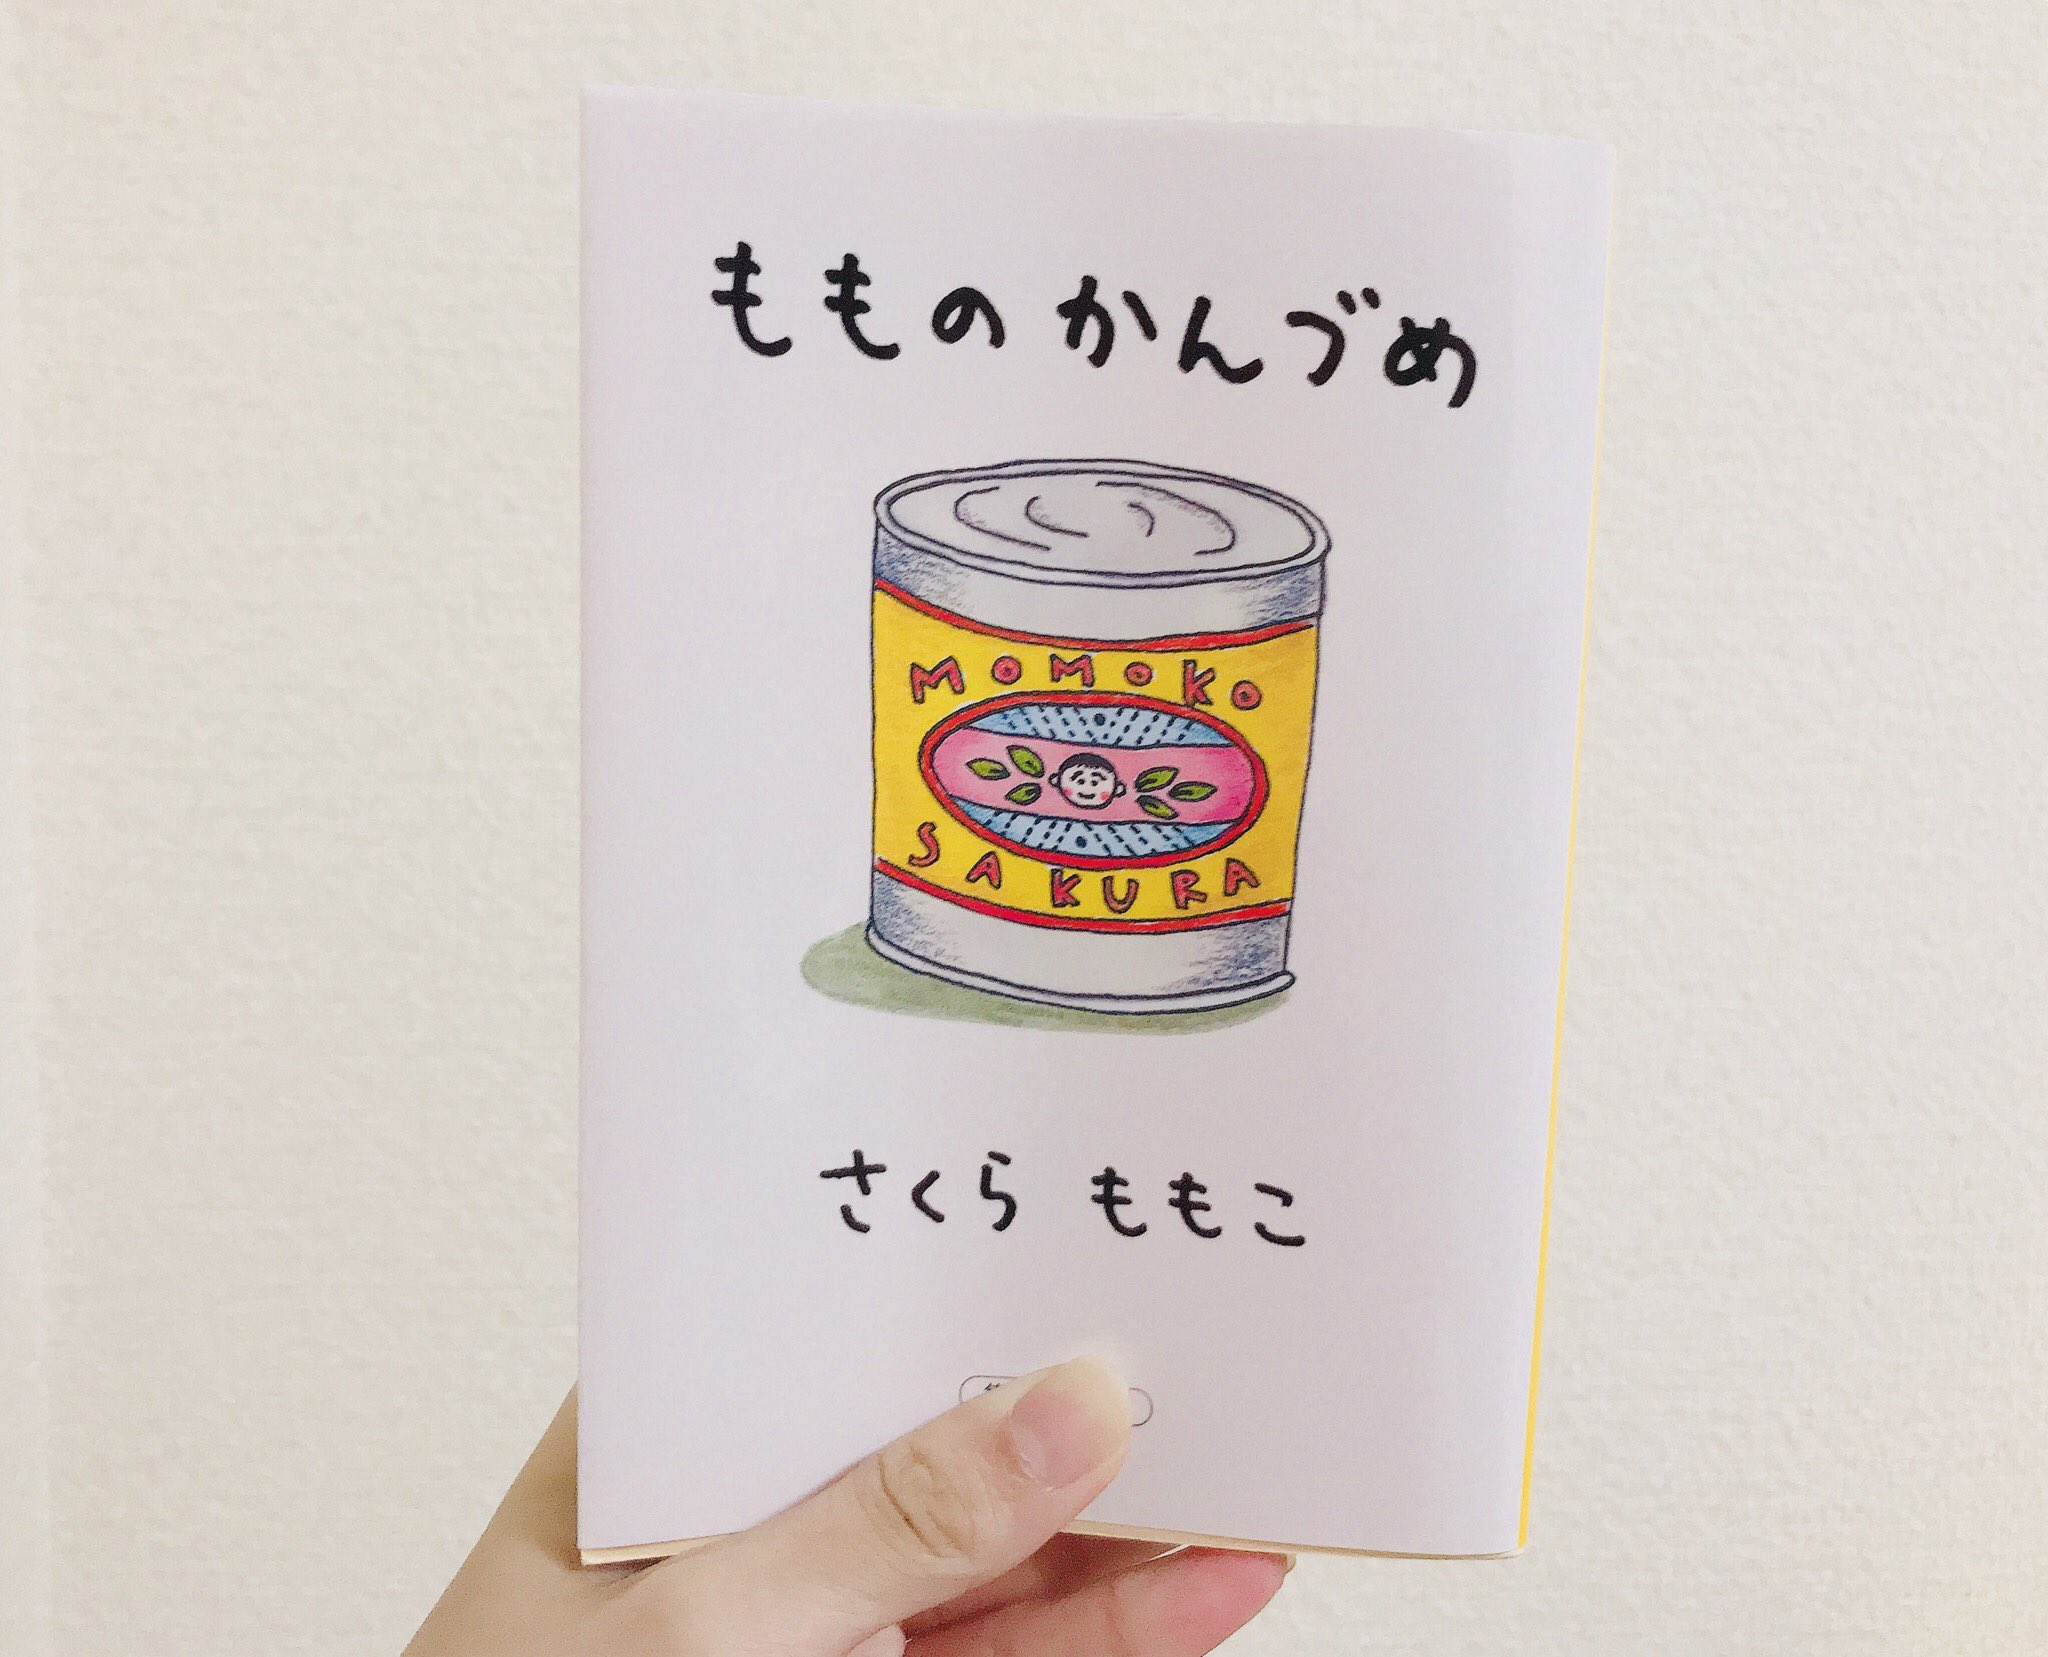 もものかんづめ
MOMOKO
SAKURA
さくら ももこ